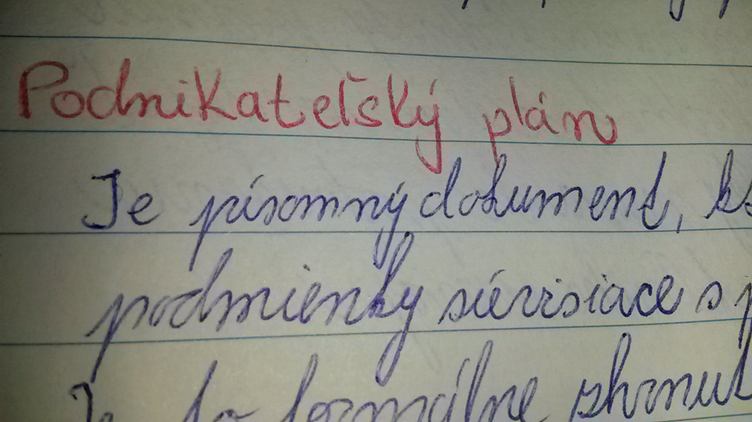 Podnikateľský plán
Je písomný dokument, kt
podmienky súvisiace s p
Je to formálne zhrnut